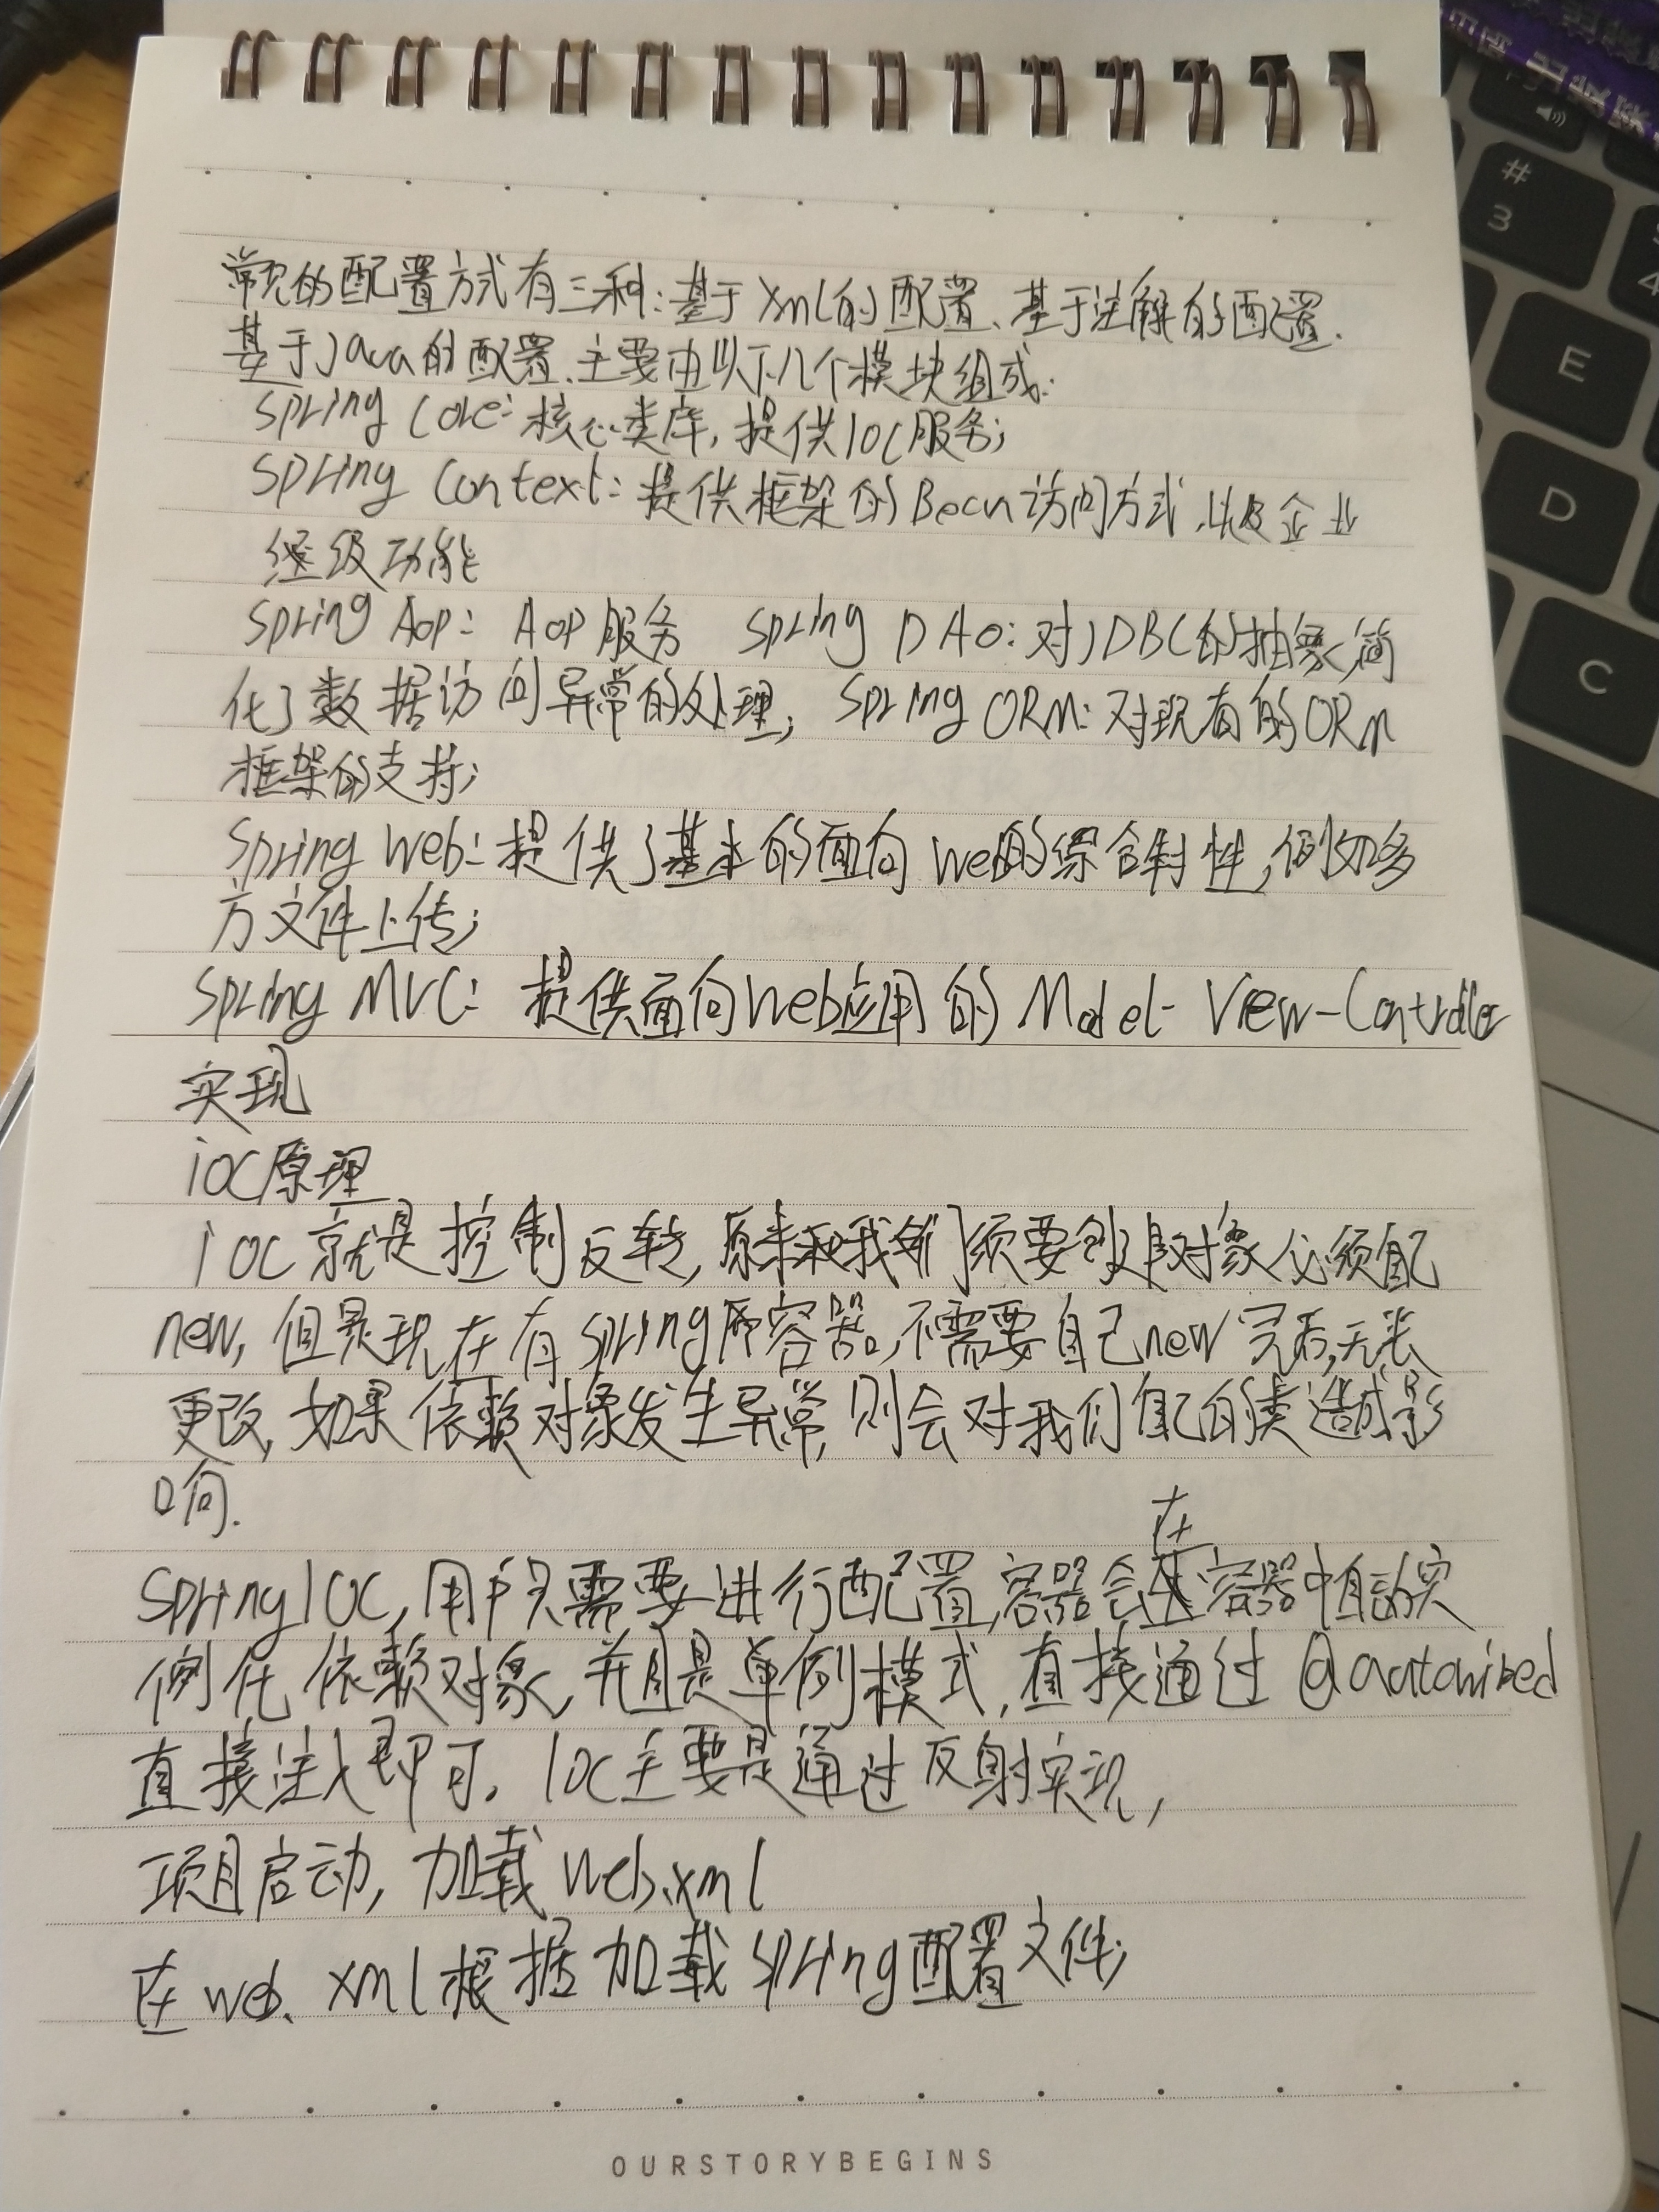 常见的配置方式有三种:基于Xml的配置、基于注解的配置、
基于Java的配置、主要由以下几个模块组成:
Spring Core:核心类库,提供IOC服务;
Spring Context:提供框架的Bean访问方式,以及企业
级功能
Spring Aop: Aop服务 Spring DAO:对JDBC的抽象,简
化了数据访问异常的处理; Spring ORM:对现有的ORM
框架的支持;
Spring Web:提供了基本的面向Web的综合特性,例如多
方文件上传;
Spring MVC: 提供面向Web应用的Model-View-Controller
实现
ioc原理
ioc就是控制反转,原来我们须要创建对象必须自己
new,但是现在有spring容器,不需要自己new
更改,如果依赖对象发生异常,则会对我们自己的类造成影
响.
Spring IOC,用户只需要进行配置,容器会在容器中自动实
例化依赖对象,并且是单例模式,直接通过@autowired
直接注入即可。IOC主要是通过反射实现,
项目启动,加载Web.xml
在web.xml根据加载Spring配置文件;
OURSTORYBEGINS
#
3
4
E
D
C